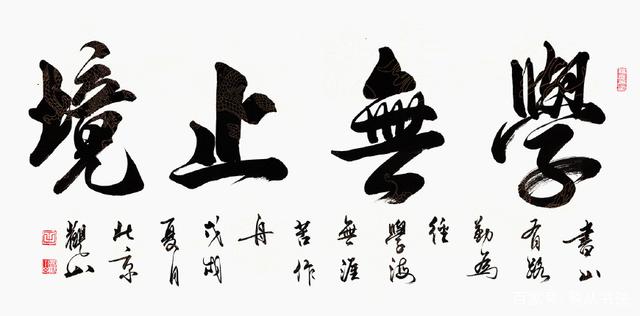 學無止境
書山
有路
勤為
徑
學海
無涯
苦作
舟
戊戌
夏月
北京
觀山
百家号